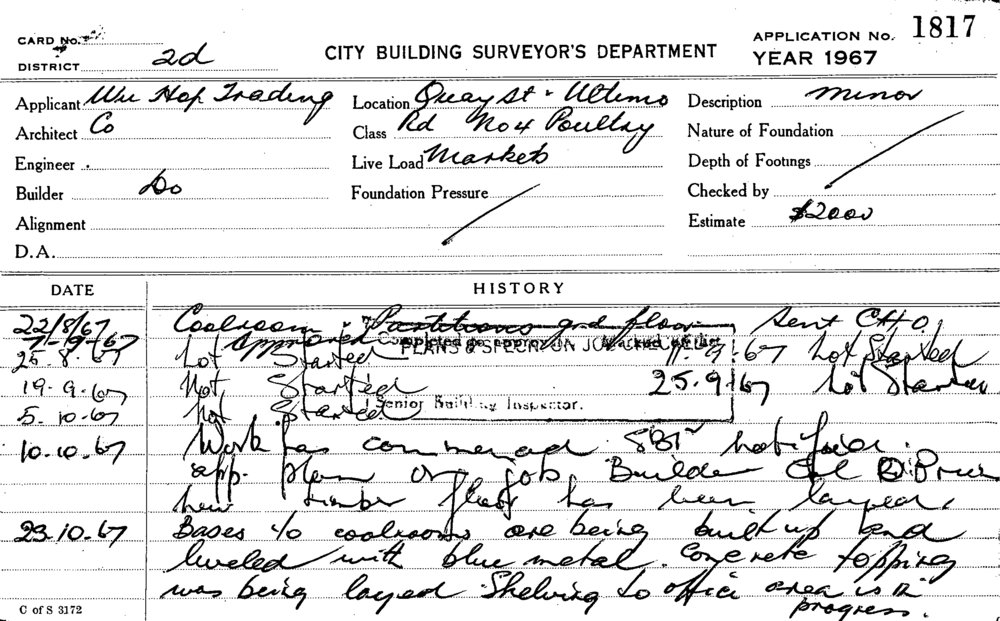 CARD No.
DISTRICT 2d
CITY BUILDING SURVEYOR'S DEPARTMENT
APPLICATION No. 1817
YEAR 1967
Applicant Wu Hop Trading
Architect Co
Engineer .
Builder Do
Alignment
D.A.
Location Quay St - Ultimo
Class Rd No 4 Poultry
Live Load Markets
Foundation Pressure
Description minor
Nature of Foundation
Depth of Footings
Checked by
Estimate $2000
DATE HISTORY
22/8/67 Coolroom & Partitions grd floor Sent C.H.O.
7-9-67 approved
Completed as approved Marked off list
PLANS & SPECFN ON JOB
25.8.67 Not Started 11.9.67 Not Started
19.9.67 Not Started 25.9.67 Not Started
5.10.67 Not Started
Senior Building Inspector.
10.10.67 Work has commenced SBI notified.
app. plan on job Builder
new timber floor has been layed.
23.10.67 Bases to coolrooms are being built up and
leveled with blue metal. Concrete topping
was being layed. Shelving to office area is in
progress.
C of S 3172